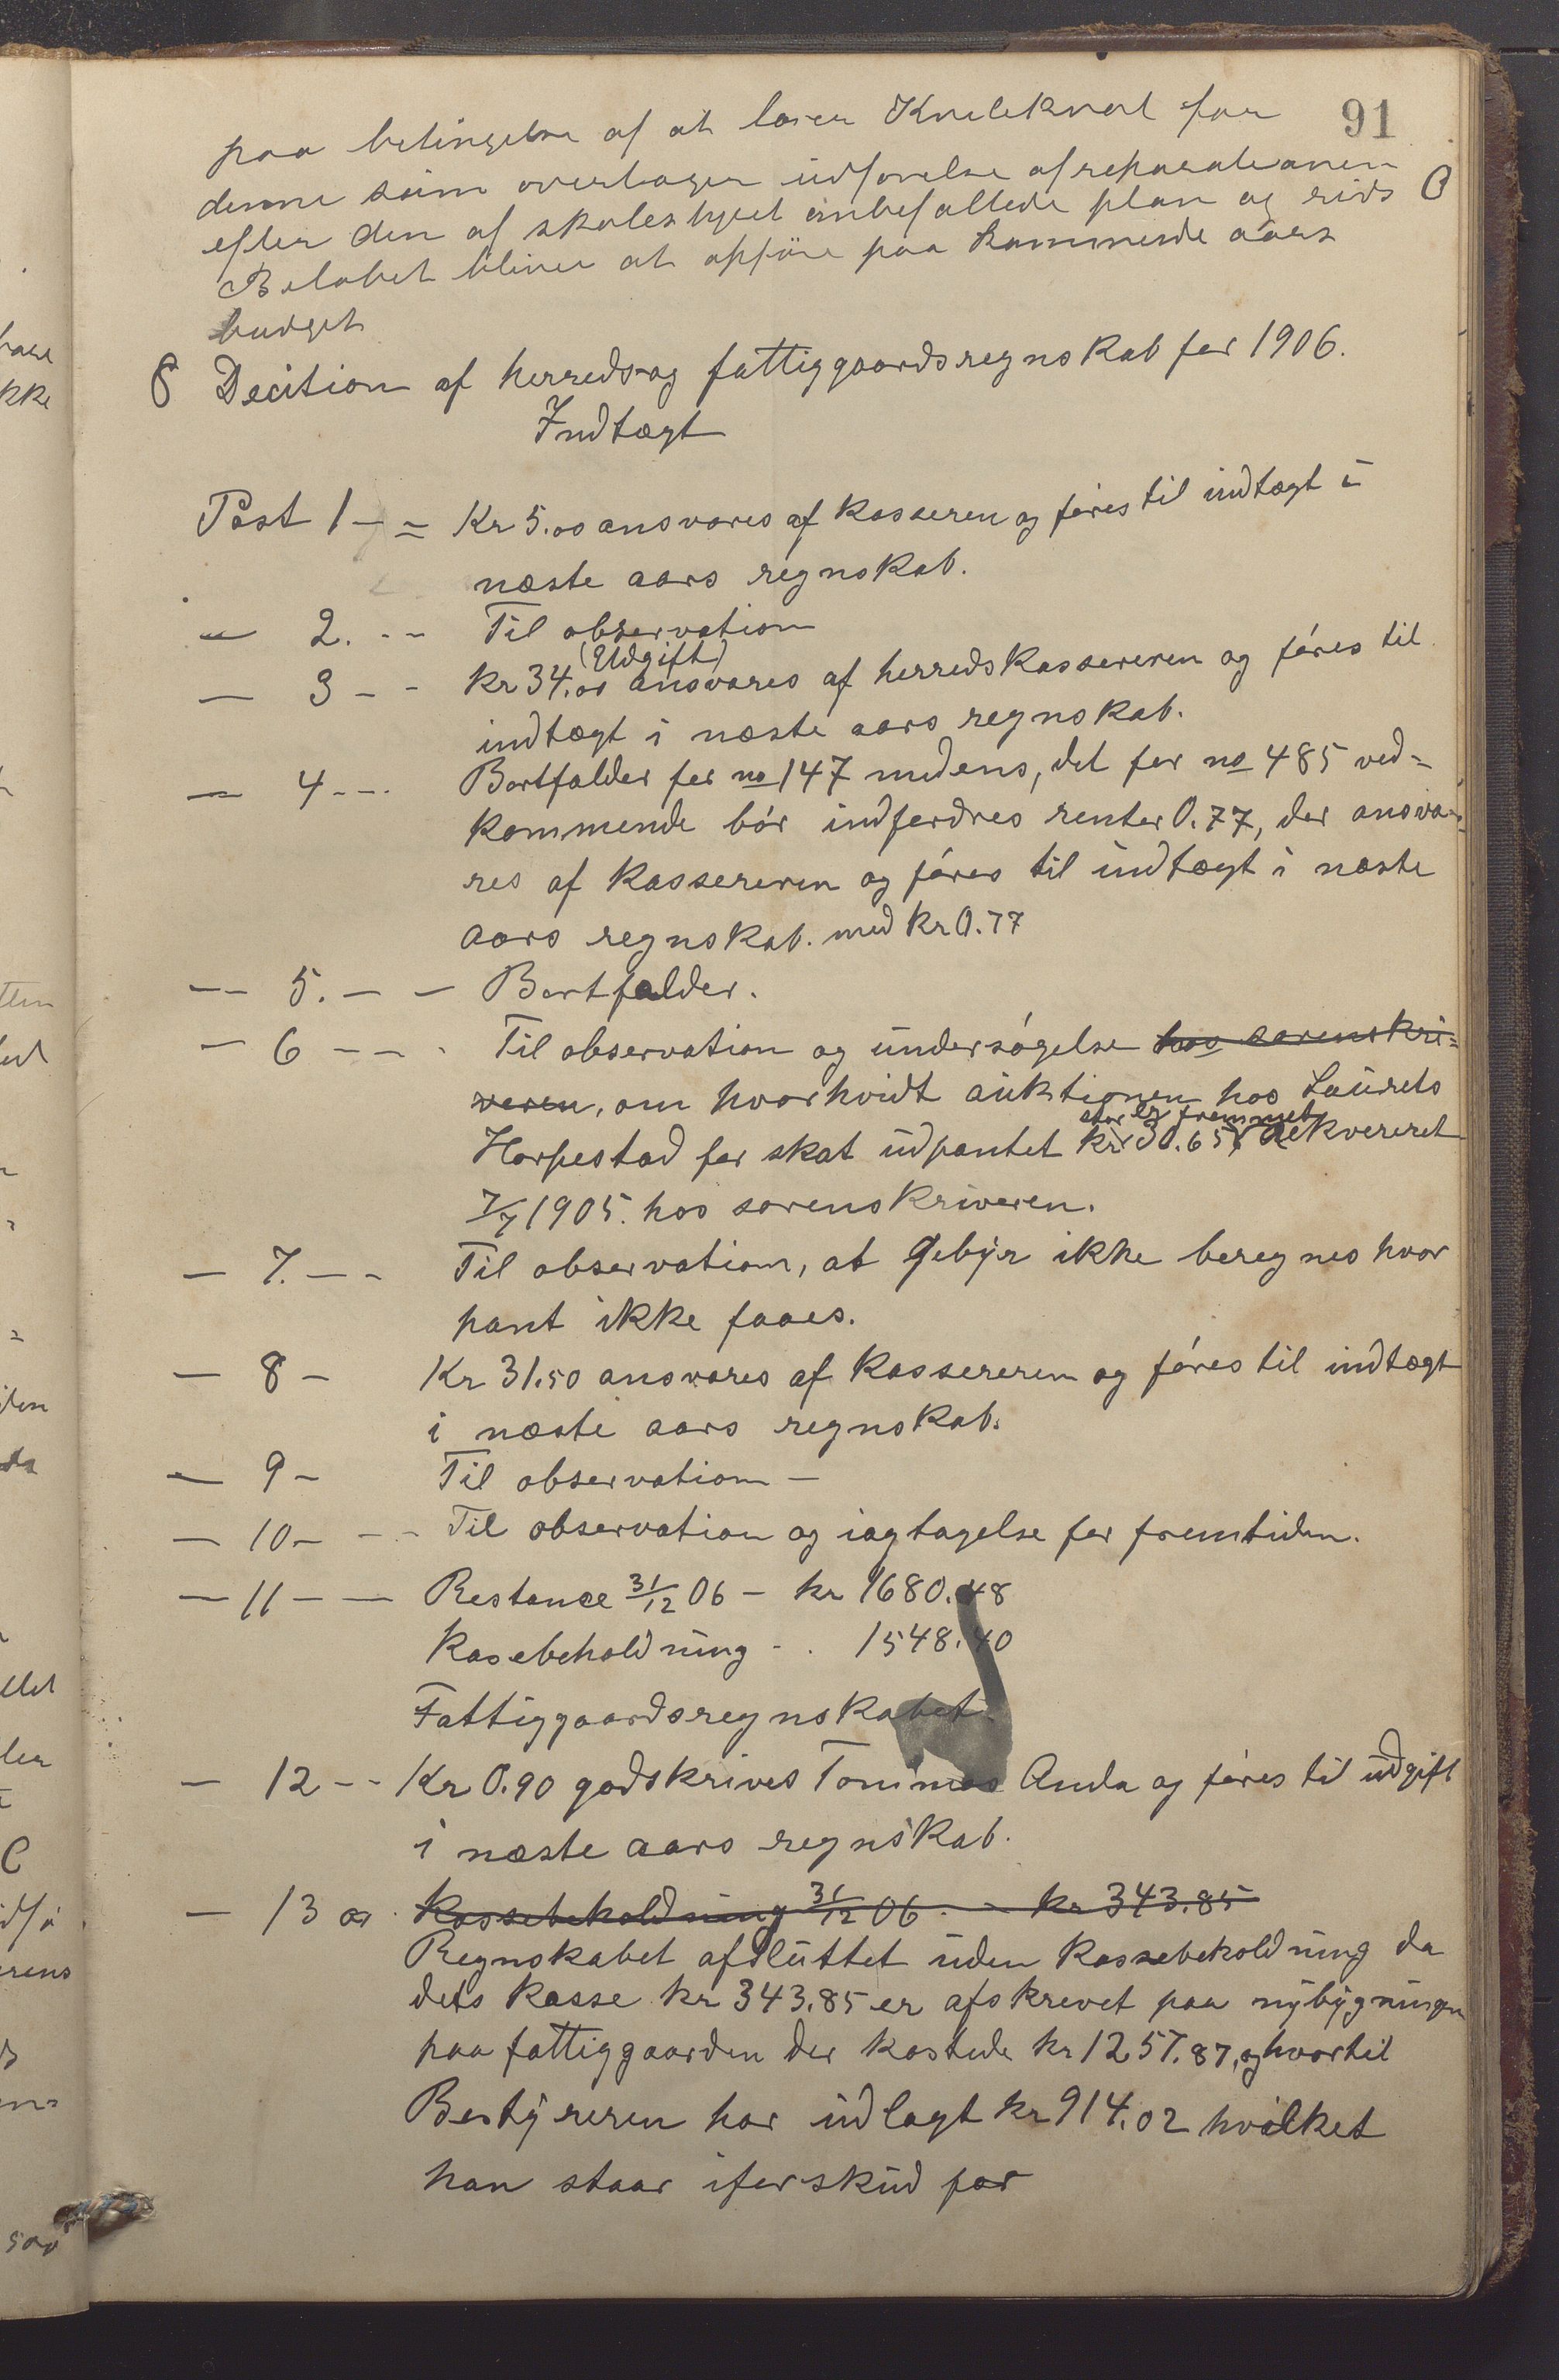 91
paa betingelse af at lærer Knelekval for
denne sum overtager udførelse af reparationen
efter den af skolestyret anbefallede plan og rids
Beløbet bliver at opføre paa kommende aars
budget
8 Decition af herreds og fattiggaardsregnskab for 1906.
Indtægt
Post 1 – = Kr 5.00 ansvares af kasseren og føres til indtægt i
næste aars regnskab.
— 2. - - Til observation
(Udgift)
— 3 - - Kr 34.00 ansvares af herredskassereren og føres til
indtægt i næste aars regnskab.
— 4 - - . Bortfalder for no 147 medens, det for no 485 ved=
kommende bør indfordres renter 0.77, der ansva=
res af kassereren og føres til indtægt i næste
aars regnskab. med kr 0.77
— 5. — — Bortfalder.
— 6 - - - Til observation og undersøgelse hos sorenskri=
veren, om hvorhvidt auktionen hos Laurets
stor er fremmet
Horpestad for skat udpantet kr 30.65 rekvereret
7/7 1905. hos sorenskriveren.
— 7. — - Til observation, at gebyr ikke beregnes hvor
pant ikke faaes.
— 8 - Kr 31.50 ansvares af kassereren og føres til indtægt
i næste aars regnskab.
— 9 - Til observation —
— 10 - - - Til observation og iagtagelse for fremtiden.
— 11 - — Restance 31/12 06 - kr 1680.48
Kasebeholdning - . 1548.40
Fattiggaardsregnskabet.
— 12 - - Kr 0.90 godskrives Tønnes Anda og føres til udgift
i næste aars regnskab.
— 13 og . Kassebeholdning 31/12 06 . - kr 343.85
Regnskabet afsluttet uden kassebeholdning da
dets kasse kr 343.85 er afskrevet paa nybygningen
paa fattiggaarden der kostede kr 1257.87, og hvortil
Bestyreren har udlagt kr 914.02 hvilket
han staar iforskud for